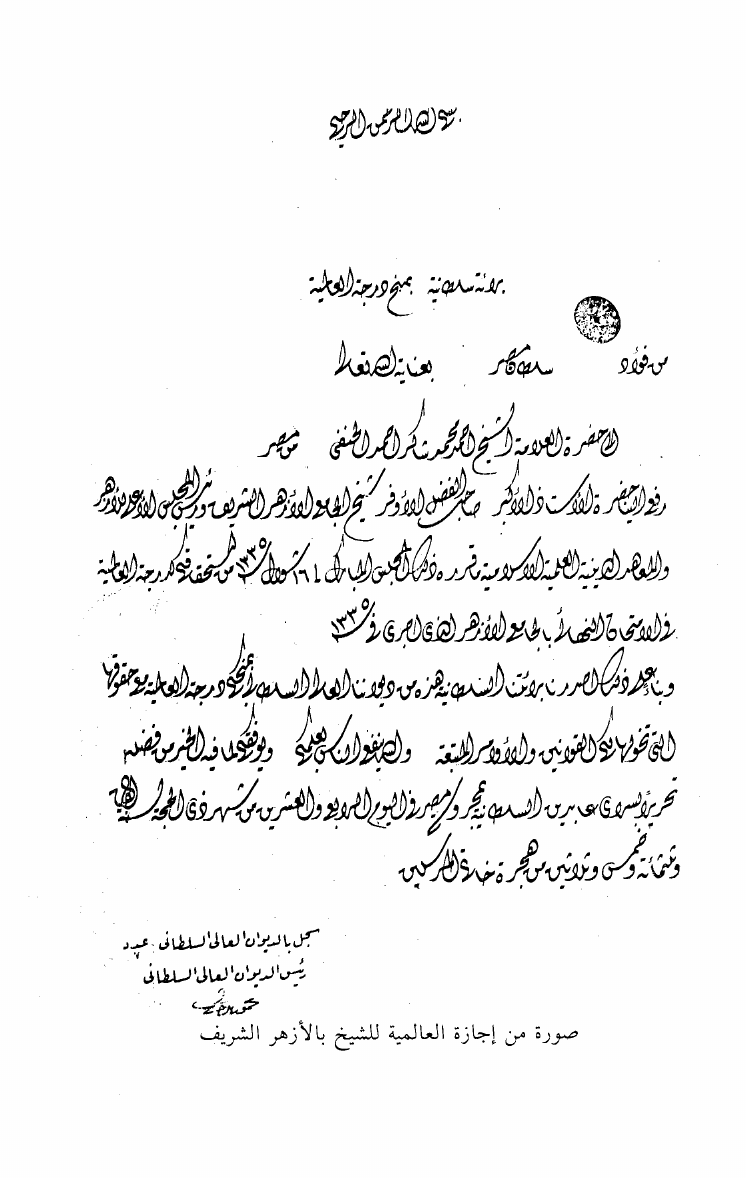 بسم الله الرحمن الرحيم
براءة سلطانية بمنح درجة العالمية
من فؤاد سلطان مصر بعناية الله تعالى
إلى حضرة العلامة الشيخ احمد محمد شاكر احمد الحنفى من مصر
رفع إلينا حضرة الأستاذ الأكبر صاحب الفضل الأوفر شيخ الجامع الأزهر الشريف ورئيس المجلس الأعلى للأزهر
والمعاهد الدينية العلمية الإسلامية ما قرره ذلك المجلس المبارك ١٦ شوال ١٣٣٥ من استحقاقكم لدرجة العالمية
فى الامتحان النهائى بالجامع الأزهر الذى اجرى فى ١٣٣٥
وبناء على ذلك اصدرنا براءتنا السلطانية هذه من ديواننا العالى السلطانى بمنحكم درجة العالمية مع حقوقها
التى تخولها لكم القوانين والأوامر المتبعة والله ينفع الناس بعلمكم ويوفقكم لما فيه الخير من فضله
تحريرا بسراى عابدين السلطانية بمحروسة مصر فى اليوم الرابع والعشرين من شهر ذى الحجة لسنة الف
وثلثمائة وخمس وثلاثين من هجرة خاتم المرسلين
سجل بالديوان العالى السلطانى عدد
رئيس الديوان العالى السلطانى
صورة من إجازة العالمية للشيخ بالأزهر الشريف